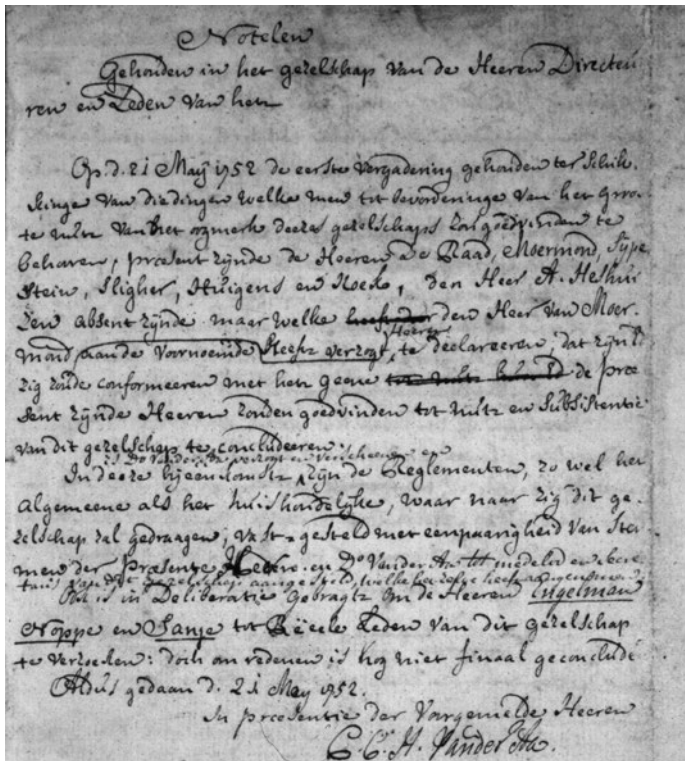 Notelen
Gehouden in het gezelschap van de Heeren Directeu
ren en Leden van het
Op. d. 21 Maÿ 1752 de eerste vergadering gehouden ter schik-
kinge van die dingen welke men tot bevorderinge van het groo-
te nutt van het oogmerk deezes gezelschaps zou goedvinden te
behoren, præsent zÿnde de Heeren de Raad, Moermond, Sÿpe
stein, Sligher, Huigens en Hoeke, den Heer A. Heshui
zen absent zÿnde maar welke den Heer van Moer-
mond aan de voornoemde Heeren heeft verzogt, te declareeren, dat zÿn Ed
zig zoude conformeeren met het geene de præ
sent zÿnde Heeren zouden goedvinden tot nutt en Subsistentie
van dit gezelschap te concludeeren.
is Do Vander Aa verzogt en verscheenen en
In deeze bÿeenkomst zÿn de Reglementen, zo wel het
Algemeene als het huishoudelÿke, waar naar zig dit ge-
zelschap zal gedraagen, vast-gesteld met eenpaarigheid van stem-
men der Præsente Heeren. en Do Vander Aa tot medelid en secre
taris van dit gezelschap aangesteld, welke het zelve heeft aangenomen
Ook is in Deliberatie gebragt om de Heeren Engelman
Noppe en Sanje tot Reëele Leden van dit gezelschap
te verzoeken: doch om redenen is nog niet finaal geconclude
Aldus gedaan d. 21 May 1752.
In præsentie der Voorgemelde Heeren
C. C. H. Vander Aa.